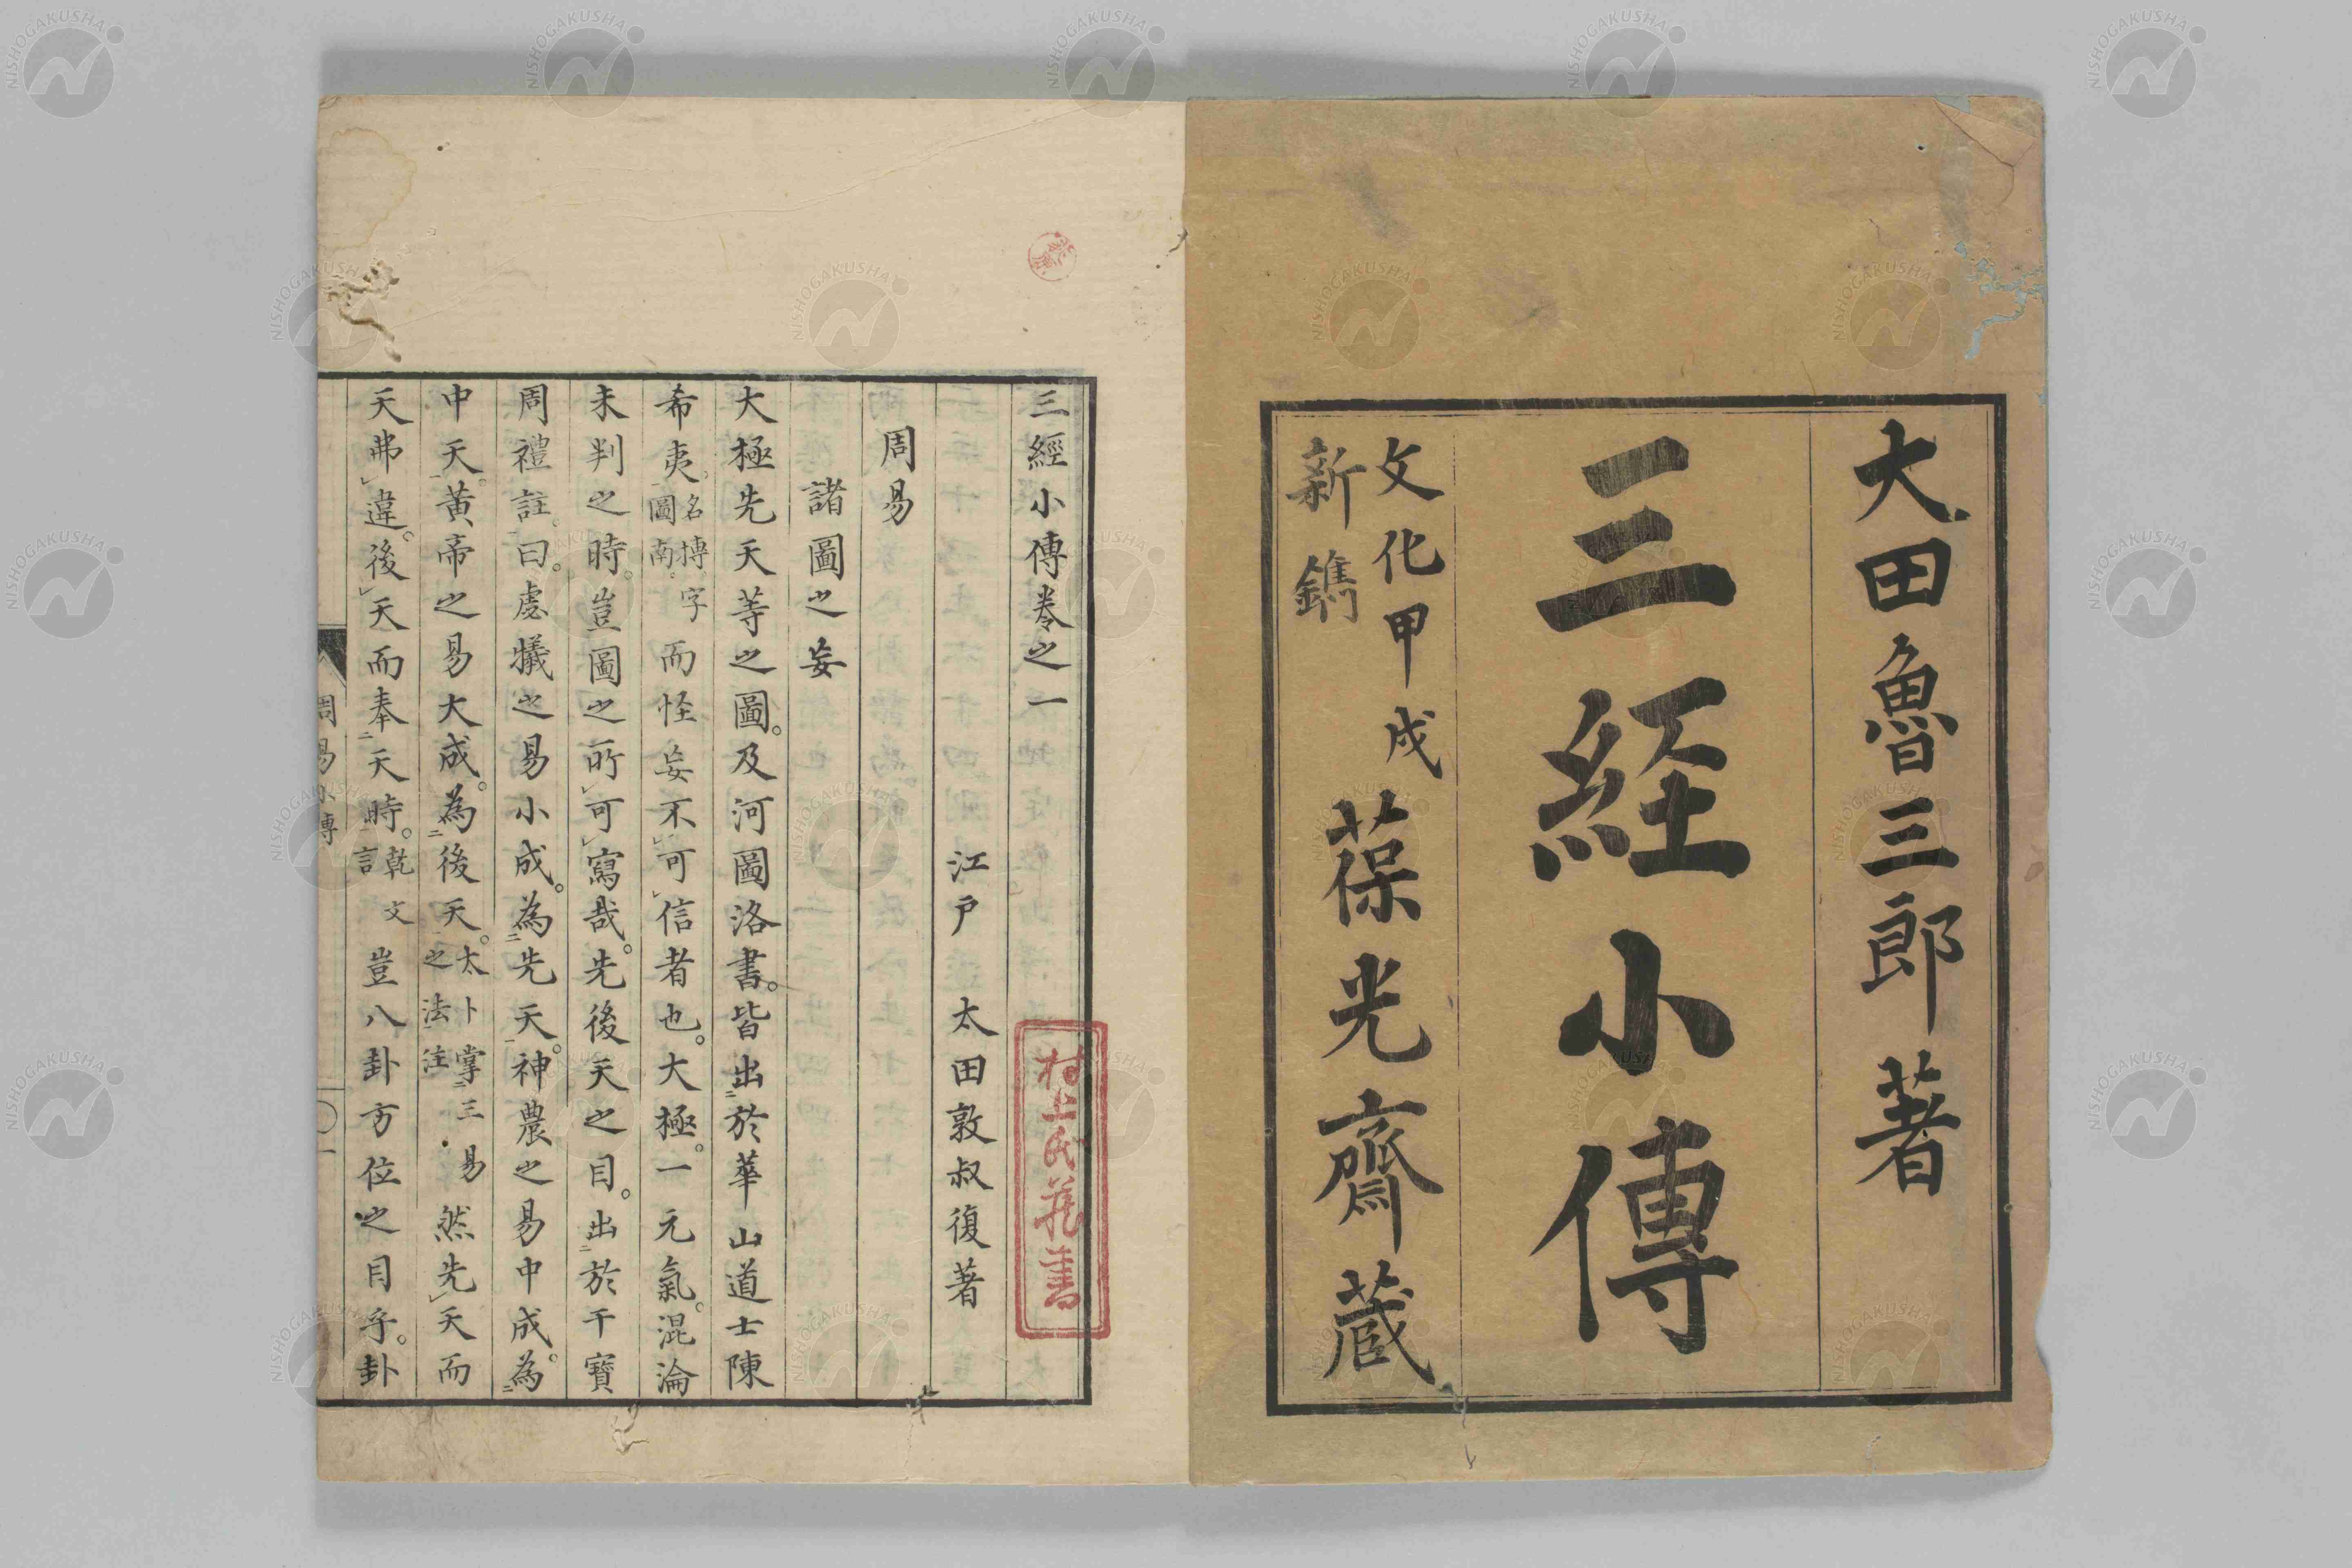 大田魯三郎著
三経小傳
文化甲戌
新鐫
葆光齋蔵
三經小傳卷之一
江戸 太田敦叔復著
周易
諸圖之妄
大極先天等之圖。及河圖洛書。皆出於華山道士陳
希夷。名摶字圖南。而怪妄不可信者也。大極。一元氣。混淪
未判之時。豈圖之所可寫哉。先後天之目。出於干寶
周禮註。曰。虙犧之易小成。為先天。神農之易中成。為
中天。黃帝之易大成。為後天。太卜掌三易之法注 然先天而
天弗違。後天而奉天時。乾文言 豈八卦方位之目乎。卦
周易小傳
一
村上氏藏書
NISHOGAKUSHA